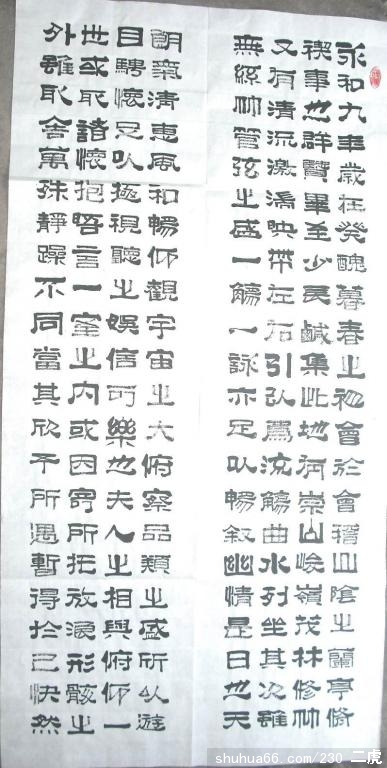 永和九年歲在癸醜暮春之初會於會稽山陰之蘭亭脩
禊事也群賢畢至少長鹹集此地有崇山峻嶺茂林修竹
又有清流激湍映帶左右引以為流觴曲水列坐其次雖
無絲竹管弦之盛一觴一詠亦足以暢敘幽情是日也天
朗氣清惠風和暢仰觀宇宙之大俯察品類之盛所以遊
目騁懷足以極視聽之娛信可樂也夫人之相與俯仰一
世或取諸懷抱悟言一室之內或因寄所托放浪形骸之
外雖取舍萬殊靜躁不同當其欣于所遇暫得於己快然
shuhua66.com/230 二虎